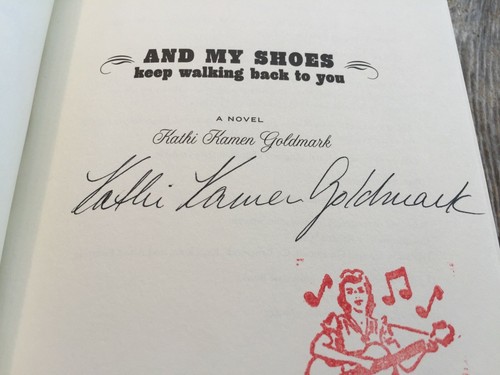 AND MY SHOES
keep walking back to you
A NOVEL
Kathi Kamen Goldmark
Kathi Kamen Goldmark